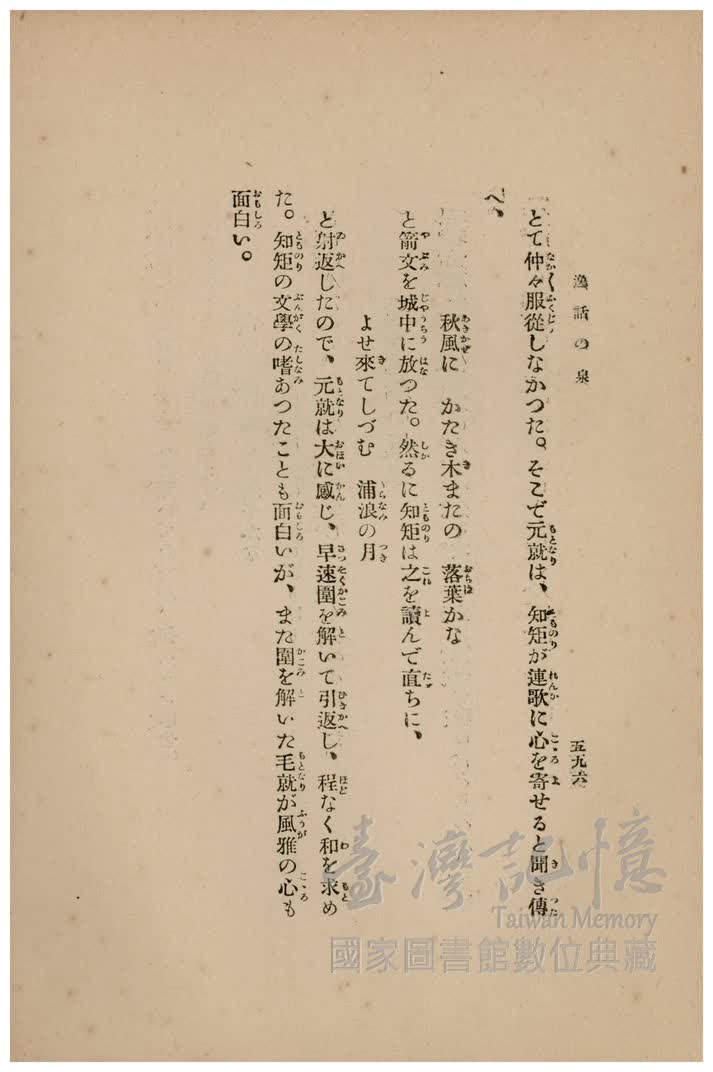 逸話の泉
五九六
とて仲々服從しなかつた。そこで元就は、知矩が連歌に心を寄せると聞き傳
へ、
秋風に かたき木またの 落葉かな
と箭文を城中に放つた。然るに知矩は之を讀んで直ちに、
よせ來てしづむ 浦浪の月
と射返したので、元就は大に感じ、早速圍を解いて引返し、程なく和を求め
た。知矩の文學の嗜あつたことも面白いが、また圍を解いた毛就が風雅の心も
面白い。
臺灣記憶
Taiwan Memory
國家圖書館數位典藏